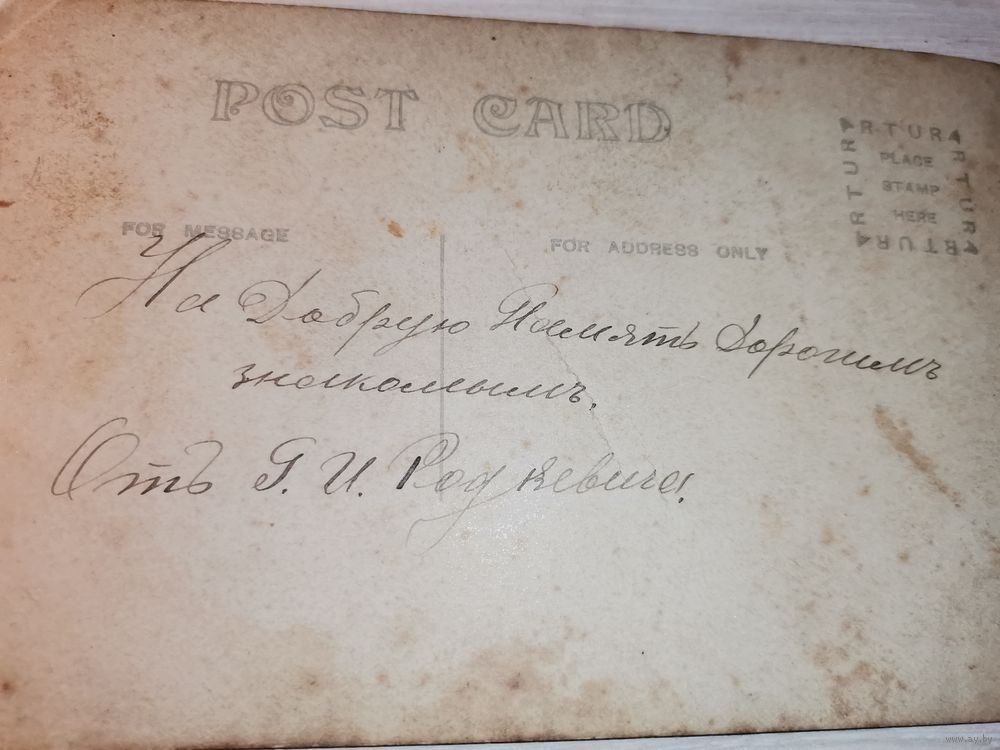 POST CARD
ARTURA
ARTURA
ARTURA
ARTURA
PLACE
STAMP
HERE
FOR MESSAGE
FOR ADDRESS ONLY
На Добрую Память Дорогимъ
знакомымъ.
Отъ Г. И. Родкевича.
www.ay.by